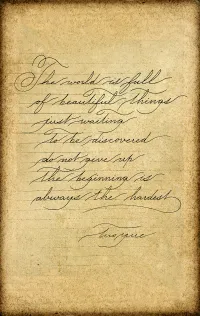 The world is full
of beautiful things
just waiting
to be discovered
do not give up
the beginning is
always the hardest